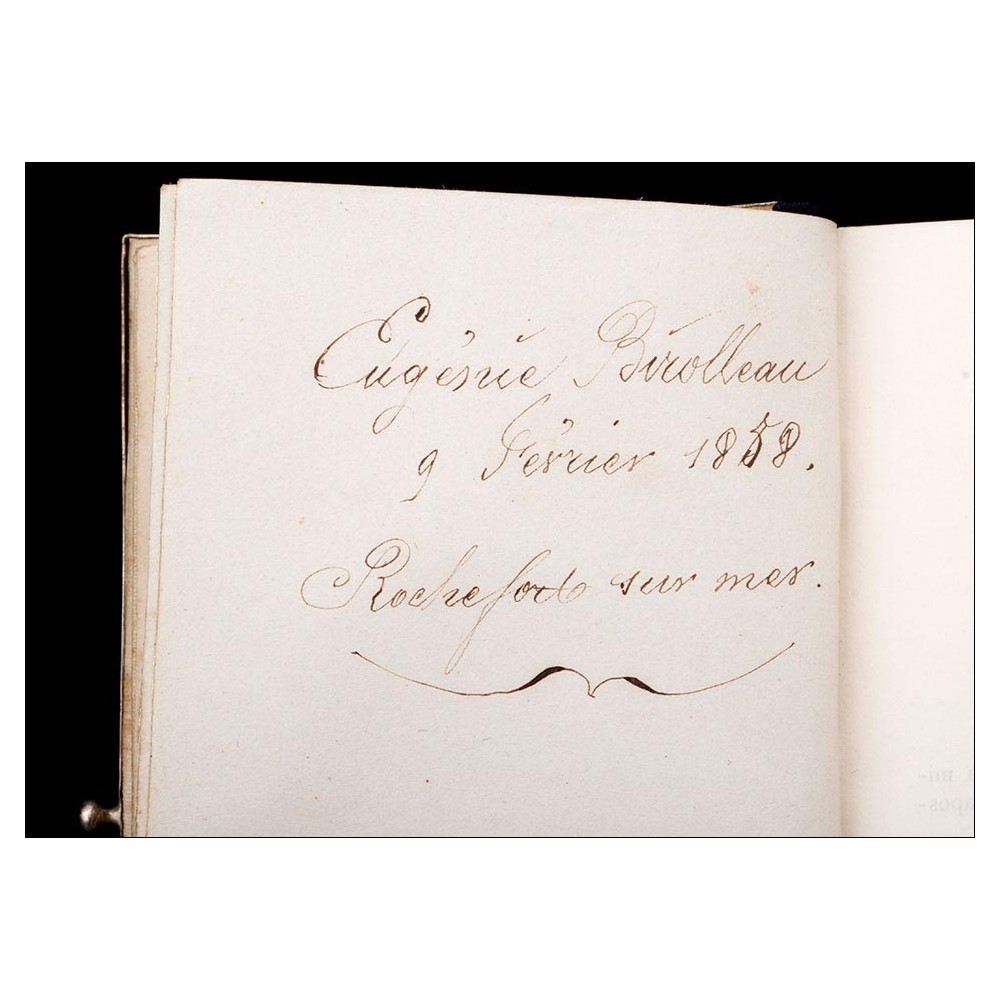 Eugénie Birolleau
9 Février 1858.
Rochefort sur mer.